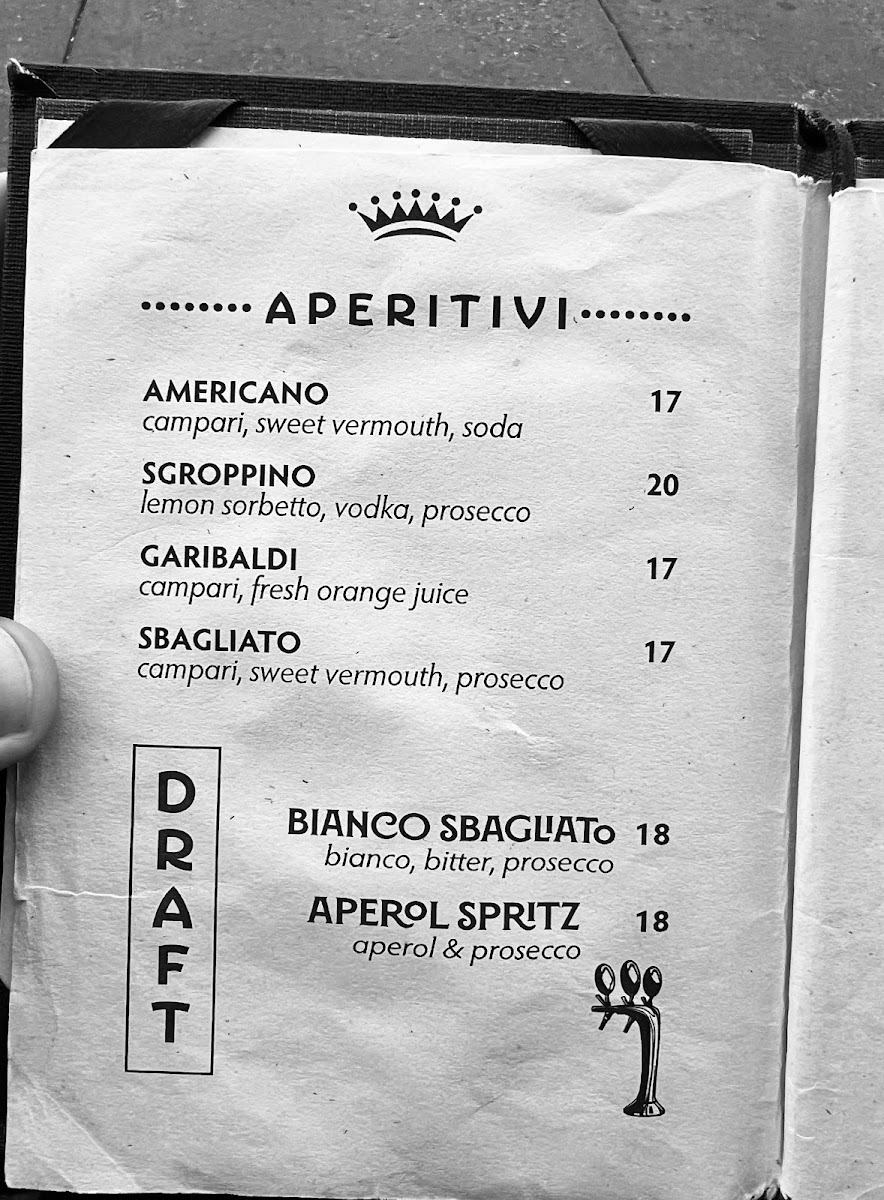 APERITIVI
AMERICANO 17
campari, sweet vermouth, soda
SGROPPINO 20
lemon sorbetto, vodka, prosecco
GARIBALDI 17
campari, fresh orange juice
SBAGLIATO 17
campari, sweet vermouth, prosecco
DRAFT
BIANCO SBAGLIATO 18
bianco, bitter, prosecco
APEROL SPRITZ 18
aperol & prosecco